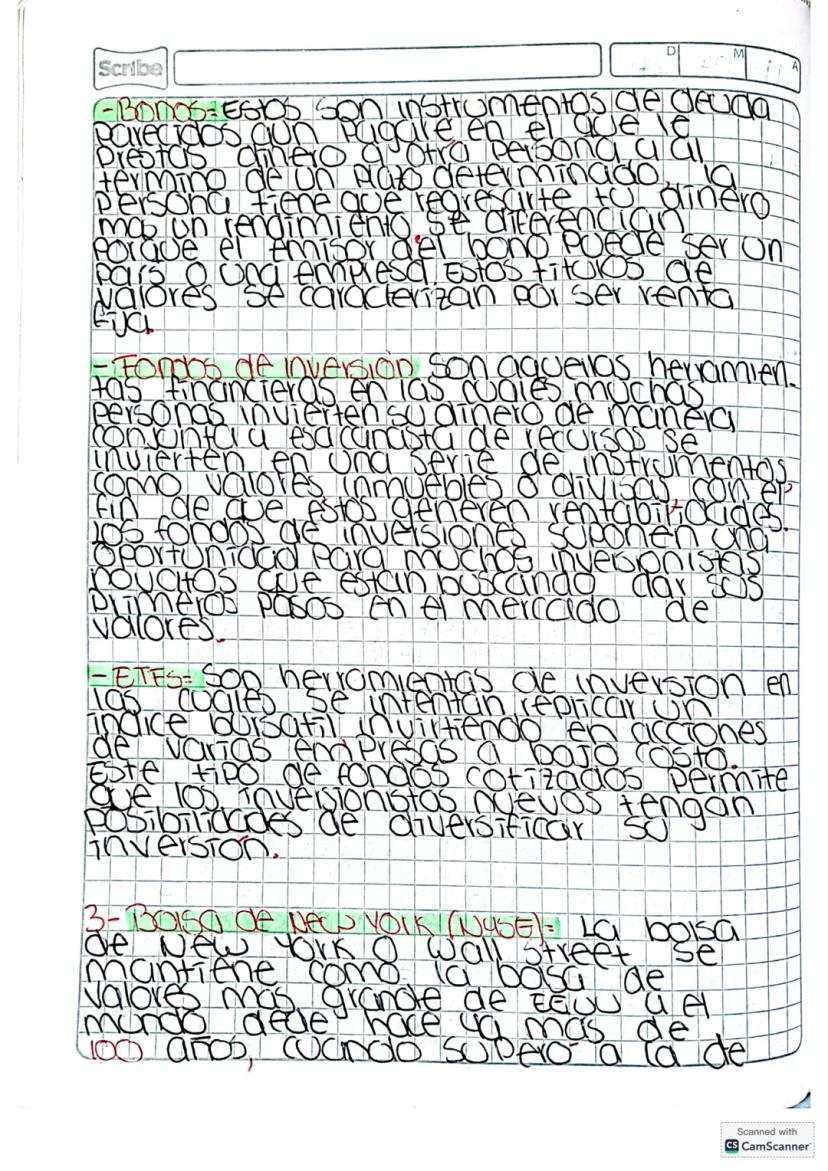 Scribe
D M A
-Bonos= Estos son instrumentos de deuda
parecidos aun pagaré en el que le
prestas dinero a otra persona y al
término de un plazo determinado, la
persona tiene que regresarte tu dinero
mas un rendimiento. Se diferencian
porque el emisor del bono puede ser un
país o una empresa. Estos titulos de
valores se caracterizan por ser renta
fija.
-Fondos de inversión son aquellas herramien-
tas financieras en las cuales muchas
personas invierten su dinero de manera
conjunta y esa canasta de recursos se
invierten en una serie de instrumentos
como valores inmuebles o divisas con el
fin de que estos generen rentabilidades.
Los fondos de inversiones suponen una
oportunidad para muchos inversionistas
novatos que estan buscando dar sus
primeros pasos en el mercado de
valores.
-ETFS= Son herramientas de inversion en
las cuales se intentan replicar un
índice bursatil invirtiendo en acciones
de varias empresas a bajo costo.
Este tipo de fondos cotizados permite
que los inversionistas nuevos tengan
posibilidades de diversificar su
inversión.
3- Bolsa de New York (NYSE)= La bolsa
de New York o Wall Street se
mantiene como la bolsa de
valores más grande de EEUU y el
mundo dede hace ya mas de
100 años, cuando superó a la de
Scanned with
CS CamScanner